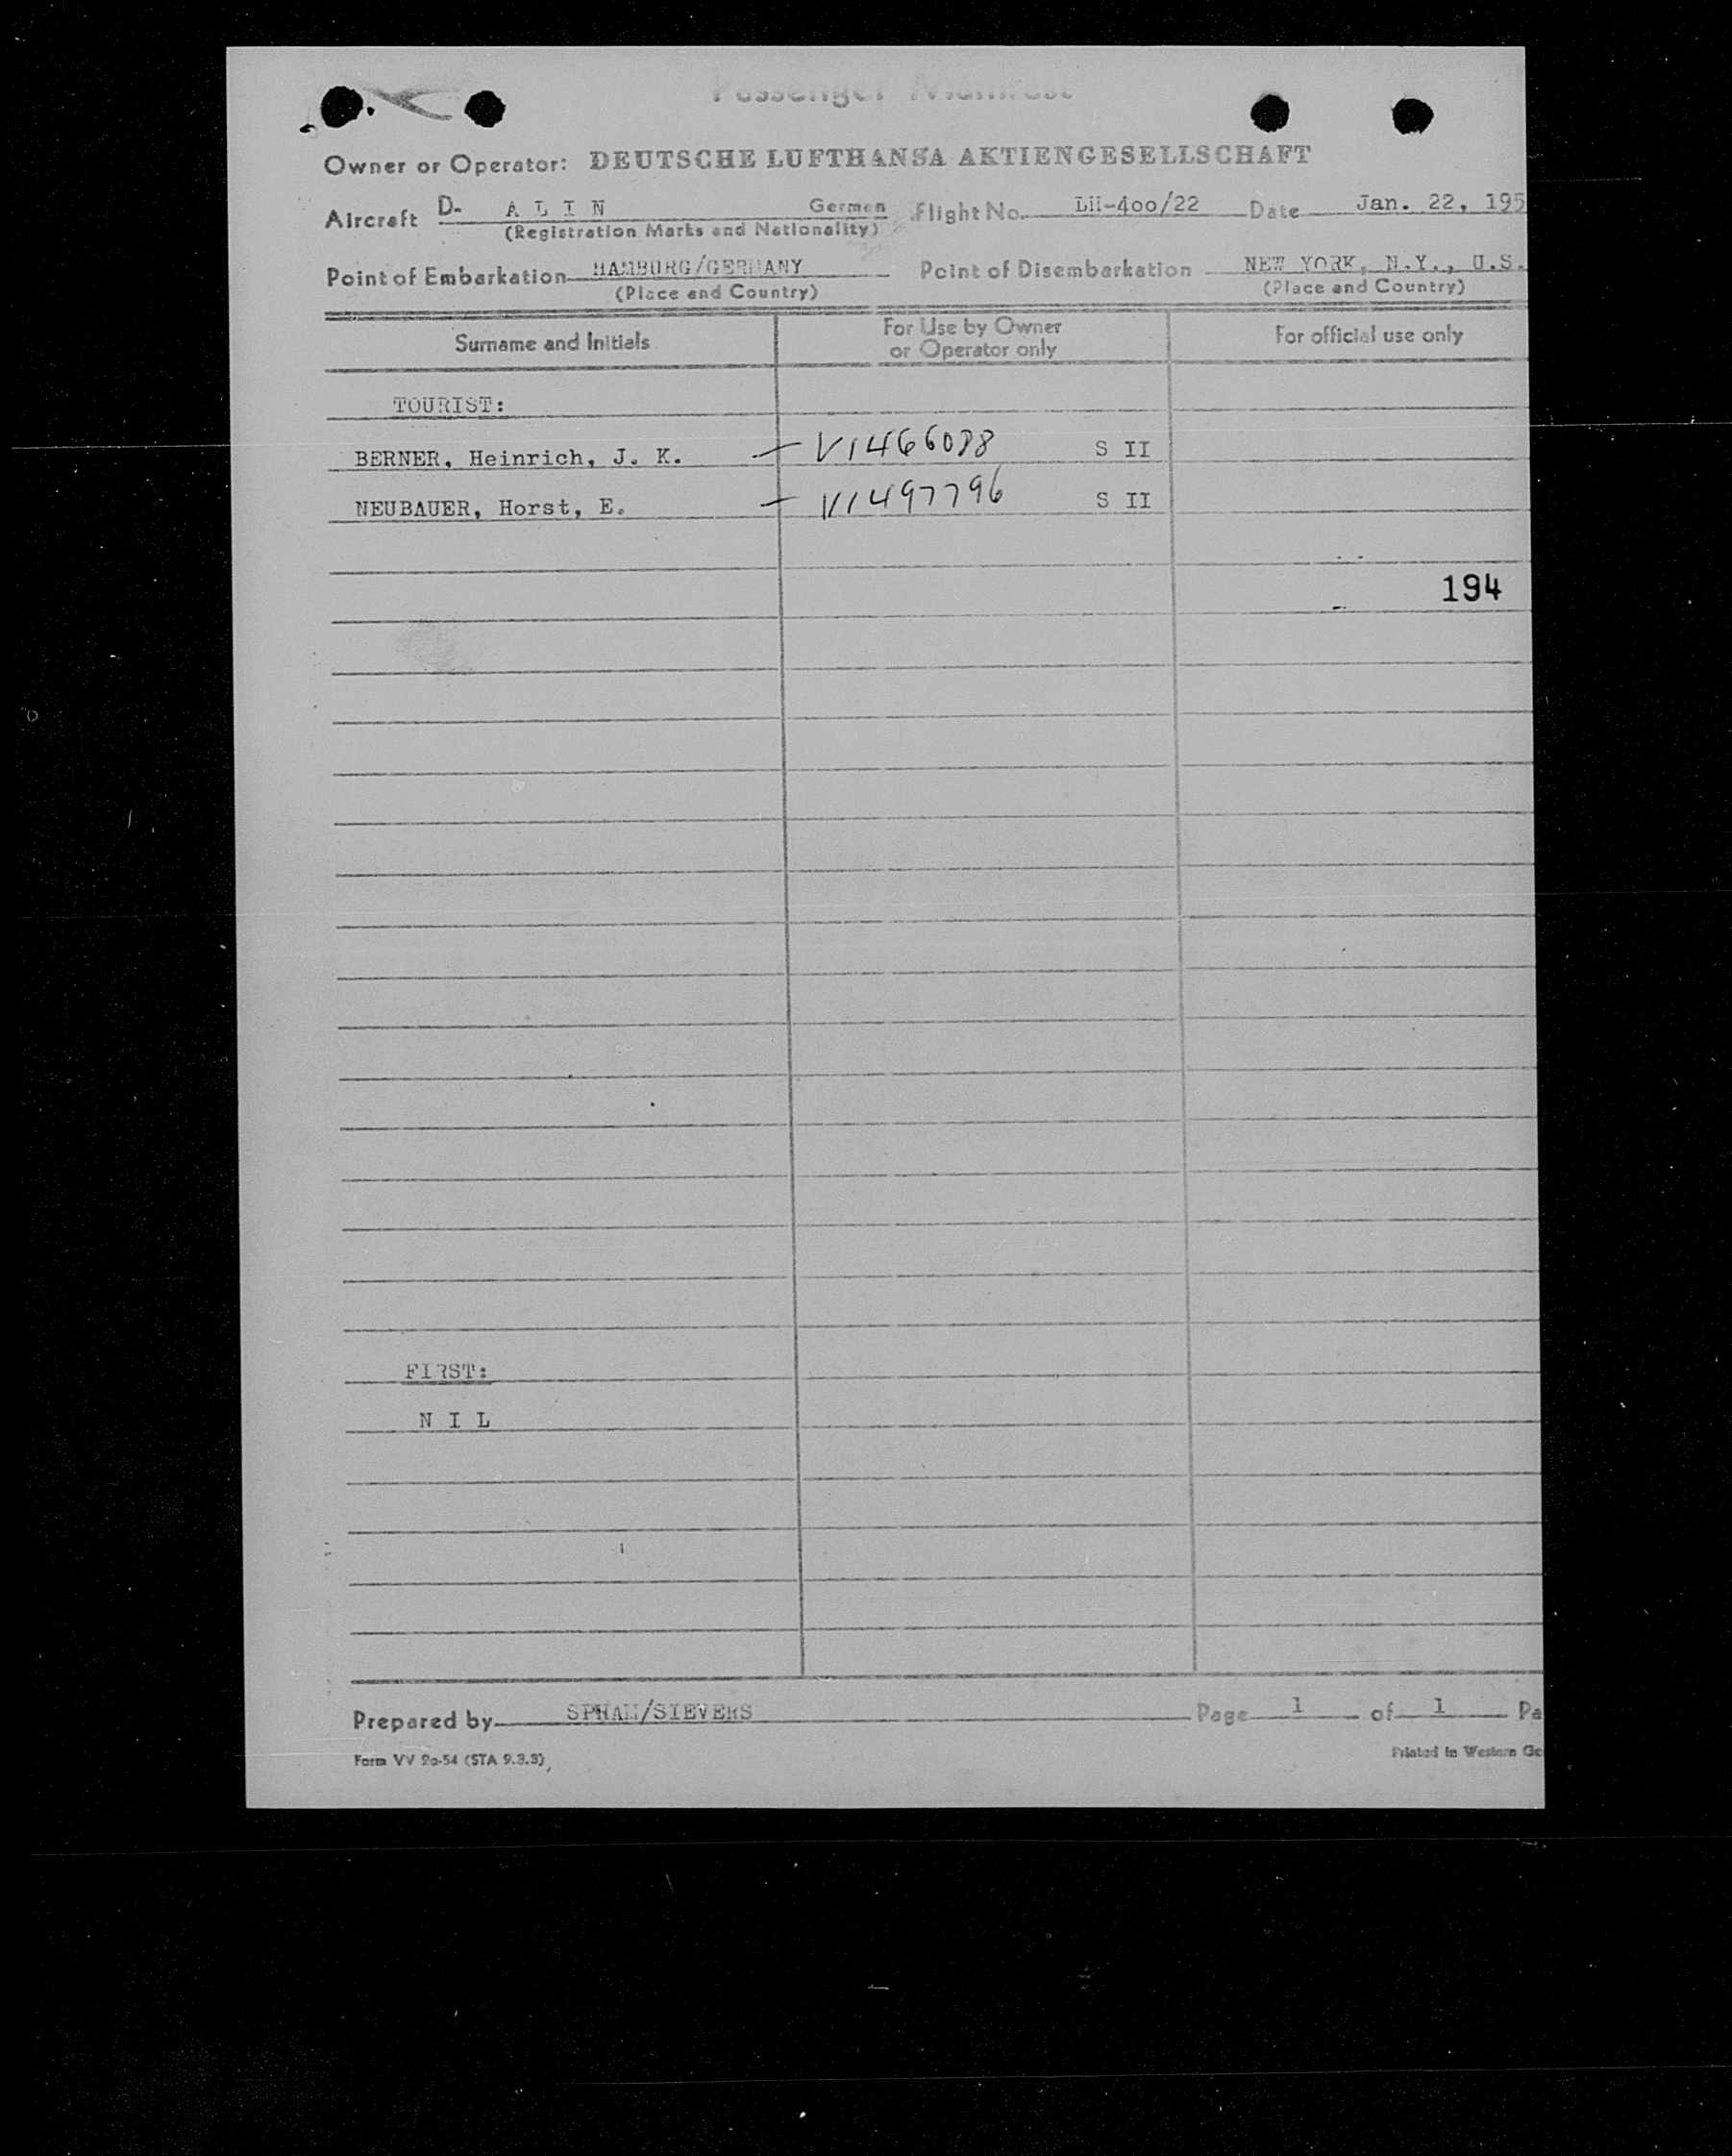 Passenger Manifest
Owner or Operator: DEUTSCHE LUFTHANSA AKTIENGESELLSCHAFT
Aircraft D- A L I N German Flight No. LH-400/22 Date Jan. 22, 195
(Registration Marks and Nationality)
Point of Embarkation HAMBURG/GERMANY Point of Disembarkation NEW YORK, N.Y., U.S.
(Place and Country) (Place and Country)
Surname and Initials For Use by Owner or Operator only For official use only
TOURIST:
BERNER, Heinrich, J. K. – V1466088 S II
NEUBAUER, Horst, E. – V1497796 S II
194
FIRST:
N I L
Prepared by SPHAN/SIEVERS Page 1 of 1 Pa
Form VV 2a-54 (STA 9.3.3) Printed in Western Ge